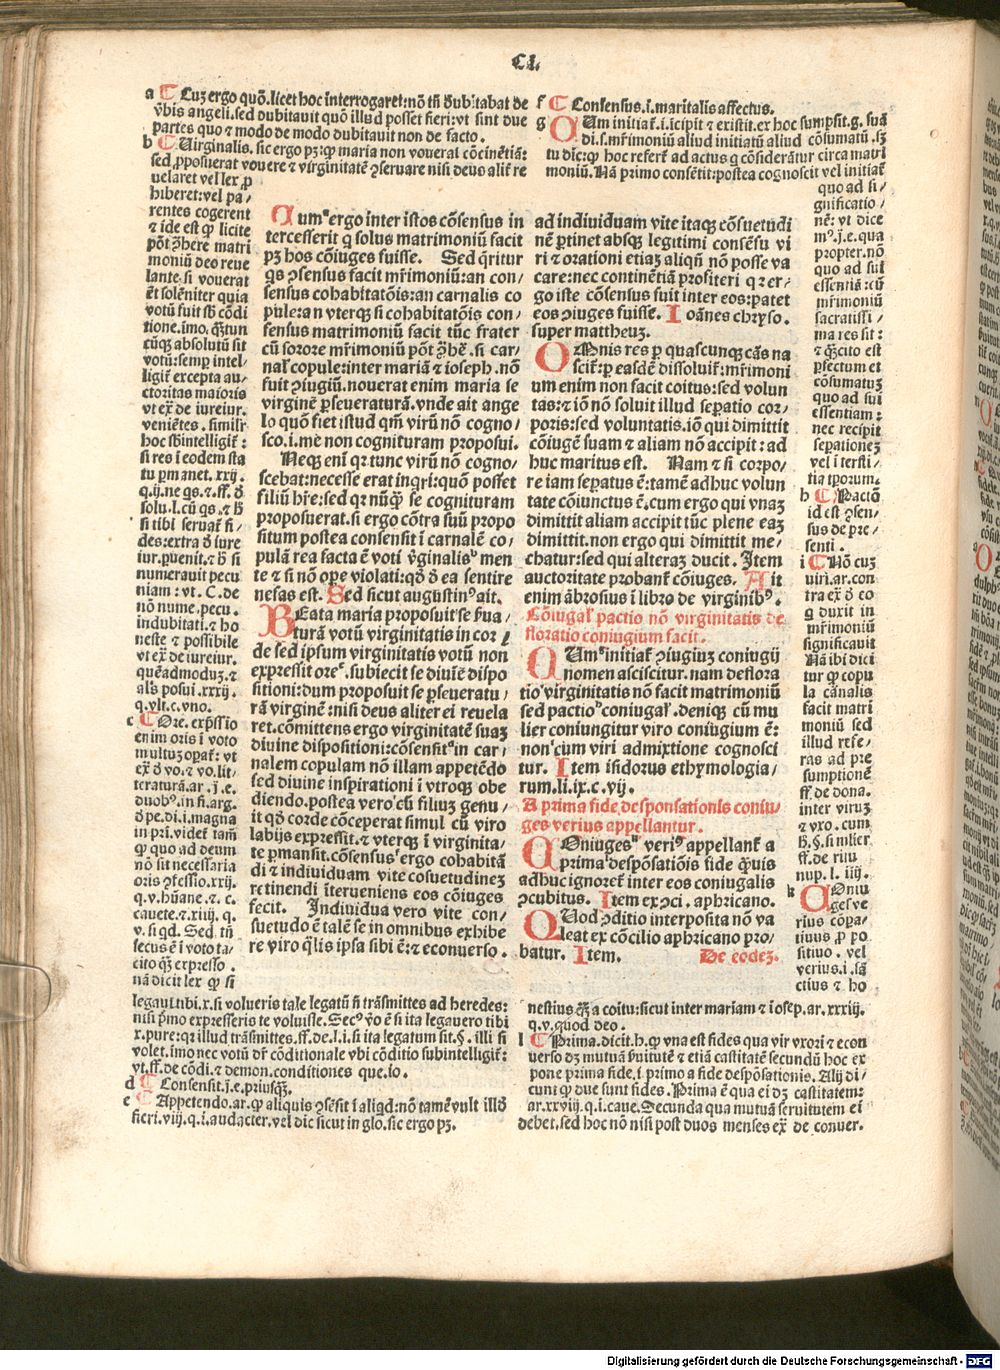 CI.
a ¶ Cuꝫ ergo quō.licet hoc interrogaret:nō tn̄ dubitabat de
v̄bis angeli.sed dubitauit quo illud posset fieri:vt sint due
partes quo ⁊ modo de modo dubitauit non de facto.
b ¶ Uirginalis.sic ergo pꝫ:ꝙ maria non vouerat cōcinētiā:
sed ꝓposuerat vouere ⁊ virginitatē ꝯseruare nisi deus alit̄ re
uelaret vel lex ꝓ
hiberet:vel pa/
rentes cogerent
⁊ ide est ꝙ licite
pōt ꝯhere matri
moniū des reue
lante.si vouerat
ēt solēniter quia
votū fuit sb cōdi
tione.imo.qꝫtun
cūqꝫ absolutū sit
votū:semꝑ intel-
ligit̄ excepta au/
ctoritas maioris
vt ex̄ de iureiur.
veniētes. similr̄
hoc sbintelligit̄ :
si res i eodem sta
tu ꝑmanet.xxij.
q.ij.ne qs.⁊.ff. ð
solu.l.cū qs .⁊ ð
si tibi seruat̄ fi/
des:extra ð iure
iur.ꝑuenit.⁊ ð si
numerauit pecu
niam : vt .C.de
nō nume.pecu.
indubitati.⁊ ho
neste ⁊ possibile
vt ex̄ de iureiur.
quēadmoduꝫ.⁊
als posui .xxxij.
q.vlt.c.vno.
c ¶ Ore.exp̄ssio
enim oris i voto
multuꝫ oꝑat̄: vt
ex̄ ð vo.⁊ vo.lit/
teraturā.ar .j.e.
duobꝰ.in fi.arg.
ð pe.di.i.magna
in pri.videt̄ tam̄
ꝙ quo ad deum
nō sit necessaria
oris ꝯfessio.xxij.
q.v.hūane.⁊ .c.
cauete.⁊.xiiij. q.
v. si qd. Sed tn̄
secus ē i voto ta-
cito qꝫ expresso .
nā dicit lex ꝙ si
legaui tibi.x.si volueris tale legatū n̄ trāsmittes ad heredes:
nisi pͥmo expresseris te voluisse. Secꝰ v̄o ē si ita legauero tibi
x.pure:qꝛ illud trāsmittes.ff.de.l.i.si ita legatum sit.§. illi si
volet.imo nec votū dr̄ cōditionale vbi cōditio subintelligit̄:
vt.ff.de cōdi.⁊ demon.conditiones que.lo.
d ¶ Consensit.i.e.priusqꝫ.
e ¶ Appetendo.ar.ꝙ aliquis ꝯsēsit i aliqd:nō tamē vult illð
fieri.viij.q.i.audacter.vel dic sicut in glo.sic ergo pꝫ.
Cumˢ ergo inter istos cōsensus in
tercesserit q solus matrimoniū facit
pꝫ hos cōiuges fuisse. Sed qͥritur
qs ꝯsensus facit mr̄imoniū:an con/
sensus cohabitatōis:an carnalis co
pule:an vterqꝫ si cohabitatōis con/
sensus matrimoniū facit tūc frater
cū sorore mr̄imoniū pōt ꝯhēe .si car/
nal̄ copule:inter mariā ⁊ ioseph .nō
fuit ꝯiugiū.nouerat enim maria se
virginē ꝑseueraturā.vnde ait ange
lo quō fiet istud qm̄ virū nō cogno/
sco.i.me non cognituram proposui.
Neqꝫ enī qꝛ tunc virū nō cogno/
scebat:necesse erat inqri:quō posset
filiū hr̄e:sed qꝛ nūqꝫ se cognituram
proposuerat.si ergo cōtra suū propo
situm postea consensit i carnalē co/
pulā rea facta ē voti v̄ginalisᵇ men
te ⁊ si nō oꝑe violati:qð ð ea sentire
nefas est. Sed sicut augustinꝰ ait.
BEata maria proposuit se p̄ua/
turā votū virginitatis in cor /
de sed ipsum virginitatis votū non
expressit oreᶜ.subiecit se diuīe dispo
sitioni:dum proposuit se ꝑseueratu/
rā virginē :nisi deus aliter ei reuela
ret.cōmittens ergo virginitatē suaꝫ
diuine dispositioni:cōsensitᵈ in car/
nalem copulam nō illam appetēdo
sed diuine inspirationi i vtroqꝫ obe
diendo.postea vero cū filiuꝫ genu/
it qð corde cōceperat simul cū viro
labijs expressit.⁊ vterqꝫ i virginita/
te ꝑmansit.cōsensusᶠ ergo cohabitā
di ⁊ indiuiduam vite cōsuetudineꝫ
retinendi iterueniens eos cōiuges
fecit. Indiuidua vero vite con/
suetudo ē talē se in omnibus exhibe
re viro qͥlis ipsa sibi ē:⁊ econuerso .
ad indiuiduam vite itaqꝫ cōsuetudi
nē ꝑtinet absqꝫ legitimi consēsu vi
ri ⁊ orationi etiaꝫ aliqn̄ nō posse va
care:nec continētiā profiteri qꝛ er/
go iste cōsensus fuit inter eos:patet
eos ꝯiuges fuisse. Ioānes chryso.
super mattheuꝫ.
OMnis res ꝑ quascunqꝫ cās na
scit̄:ꝑ easdē dissoluit̄:mr̄imoni
um enim non facit coitus:sed volun
tas:⁊ iō nō soluit illud seꝑatio cor/
poris:sed voluntatis.iō qui dimittit
cōiugē suam ⁊ aliam nō accipit : ad
huc maritus est. Nam ⁊ si corpo/
re iam seꝑatus ē:tamē adhuc volun
tate cōiunctus ē.cum ergo qui vnaꝫ
dimittit aliam accipit tūc plene eaꝫ
dimittit.non ergo qui dimittit me/
chatur:sed qui alteraꝫ ducit. Item
auctoritate probant̄ cōiuges. Ait
enim ābrosius i libro de virginibꝰ.
Cōiugal̄ pactio nō virginitatis de
floratio coniugium facit.
CUmᵍ initiat̄ ꝯiugiuꝫ coniugij
nomen asciscitur.nam deflora
tio virginitatis nō facit matrimoniū
sed pactioʰ coniugal̄ .deniqꝫ cū mu
lier coniungitur viro coniugium ē:
nonⁱ cum viri admixtione cognosci
tur. Item isidorus ethymologia/
rum.li.ix.c.vij.
A prima fide desponsationis coniu/
ges verius appellantur.
COniugesᵏ veriꝰ appellant̄ a
primaˡ despōsatiōis fide qͣuis
adhuc ignoret̄ inter eos coniugalis
ꝯcubitus. Item ex ꝯci.aphricano.
QUod ꝯditio interposita nō va
leat ex cōcilio aphricano pro/
batur. Item. De eodeꝫ.
f ¶ Consensus.i.maritalis affectus.
g CUm initiat̄.i.icipit ⁊ existit.ex hoc sumpsit.g. suā
di.s.mr̄imoniū aliud initiatū aliud cōsumatū .sꝫ
tu dic:ꝙ hoc refert̄ ad actus q cōsiderātur circa matri
moniū. Nā primo consētit:postea cognoscit vel initiat̄
quo ad si/
gnificatio/
nē: vt dice
mꝰ.j.e.qua
propter.nō
quo ad sui
essentiā: cū
mr̄imoniū
sacratissi/
ma res sit :
⁊ qꝫcito est
ꝑfectum et
cōsumatuꝫ
quo ad sui
essentiam :
nec recipit
seꝑationeꝫ
vel i tersti/
tia tꝑorum.
h ¶ Pactiō
id est ꝯsen/
sus de pre/
senti .
i ¶ Nō cuꝫ
viri.ar.con
tra ex̄ ð eo
q duxit in
mr̄imoniū
significauit
Nā ibi dici
tur ꝙ copu
la carnalis
facit matri
moniū sed
illud refe/
ras ad pre
sumptionē
ff. de dona.
inter viruꝫ
⁊ vxo . cum
h̄.§.si mlier.
ff.de ritu
nup.l.iiij.
k COniu
ges ve
rius cōpa/
tiuus ꝓ po
sitiuo . vel
verius.i.sā
ctius ⁊ ho
nestius qꝫ a coitu:sicut inter mariam ⁊ iosep.ar.xxxiij.
q.v.quod deo.
l ¶ Prima.dicit.h.ꝙ vna est fides qua vir vxori ⁊ econ
uerso dꝫ mutuā ƀuitutē ⁊ etiā castitatē secundū hoc ex
pone prima fide.i primo a fide despōsationis. Alij di/
cunt ꝙ due sunt fides. Prima ē qua ei dꝫ castitatem:
ar.xxviij.q.i.caue.Secunda qua mutuā seruitutem ei
debet.sed hoc nō nisi post duos menses ex̄ de conuer.
Digitalisierung gefördert durch die Deutsche Forschungsgemeinschaft - DFG